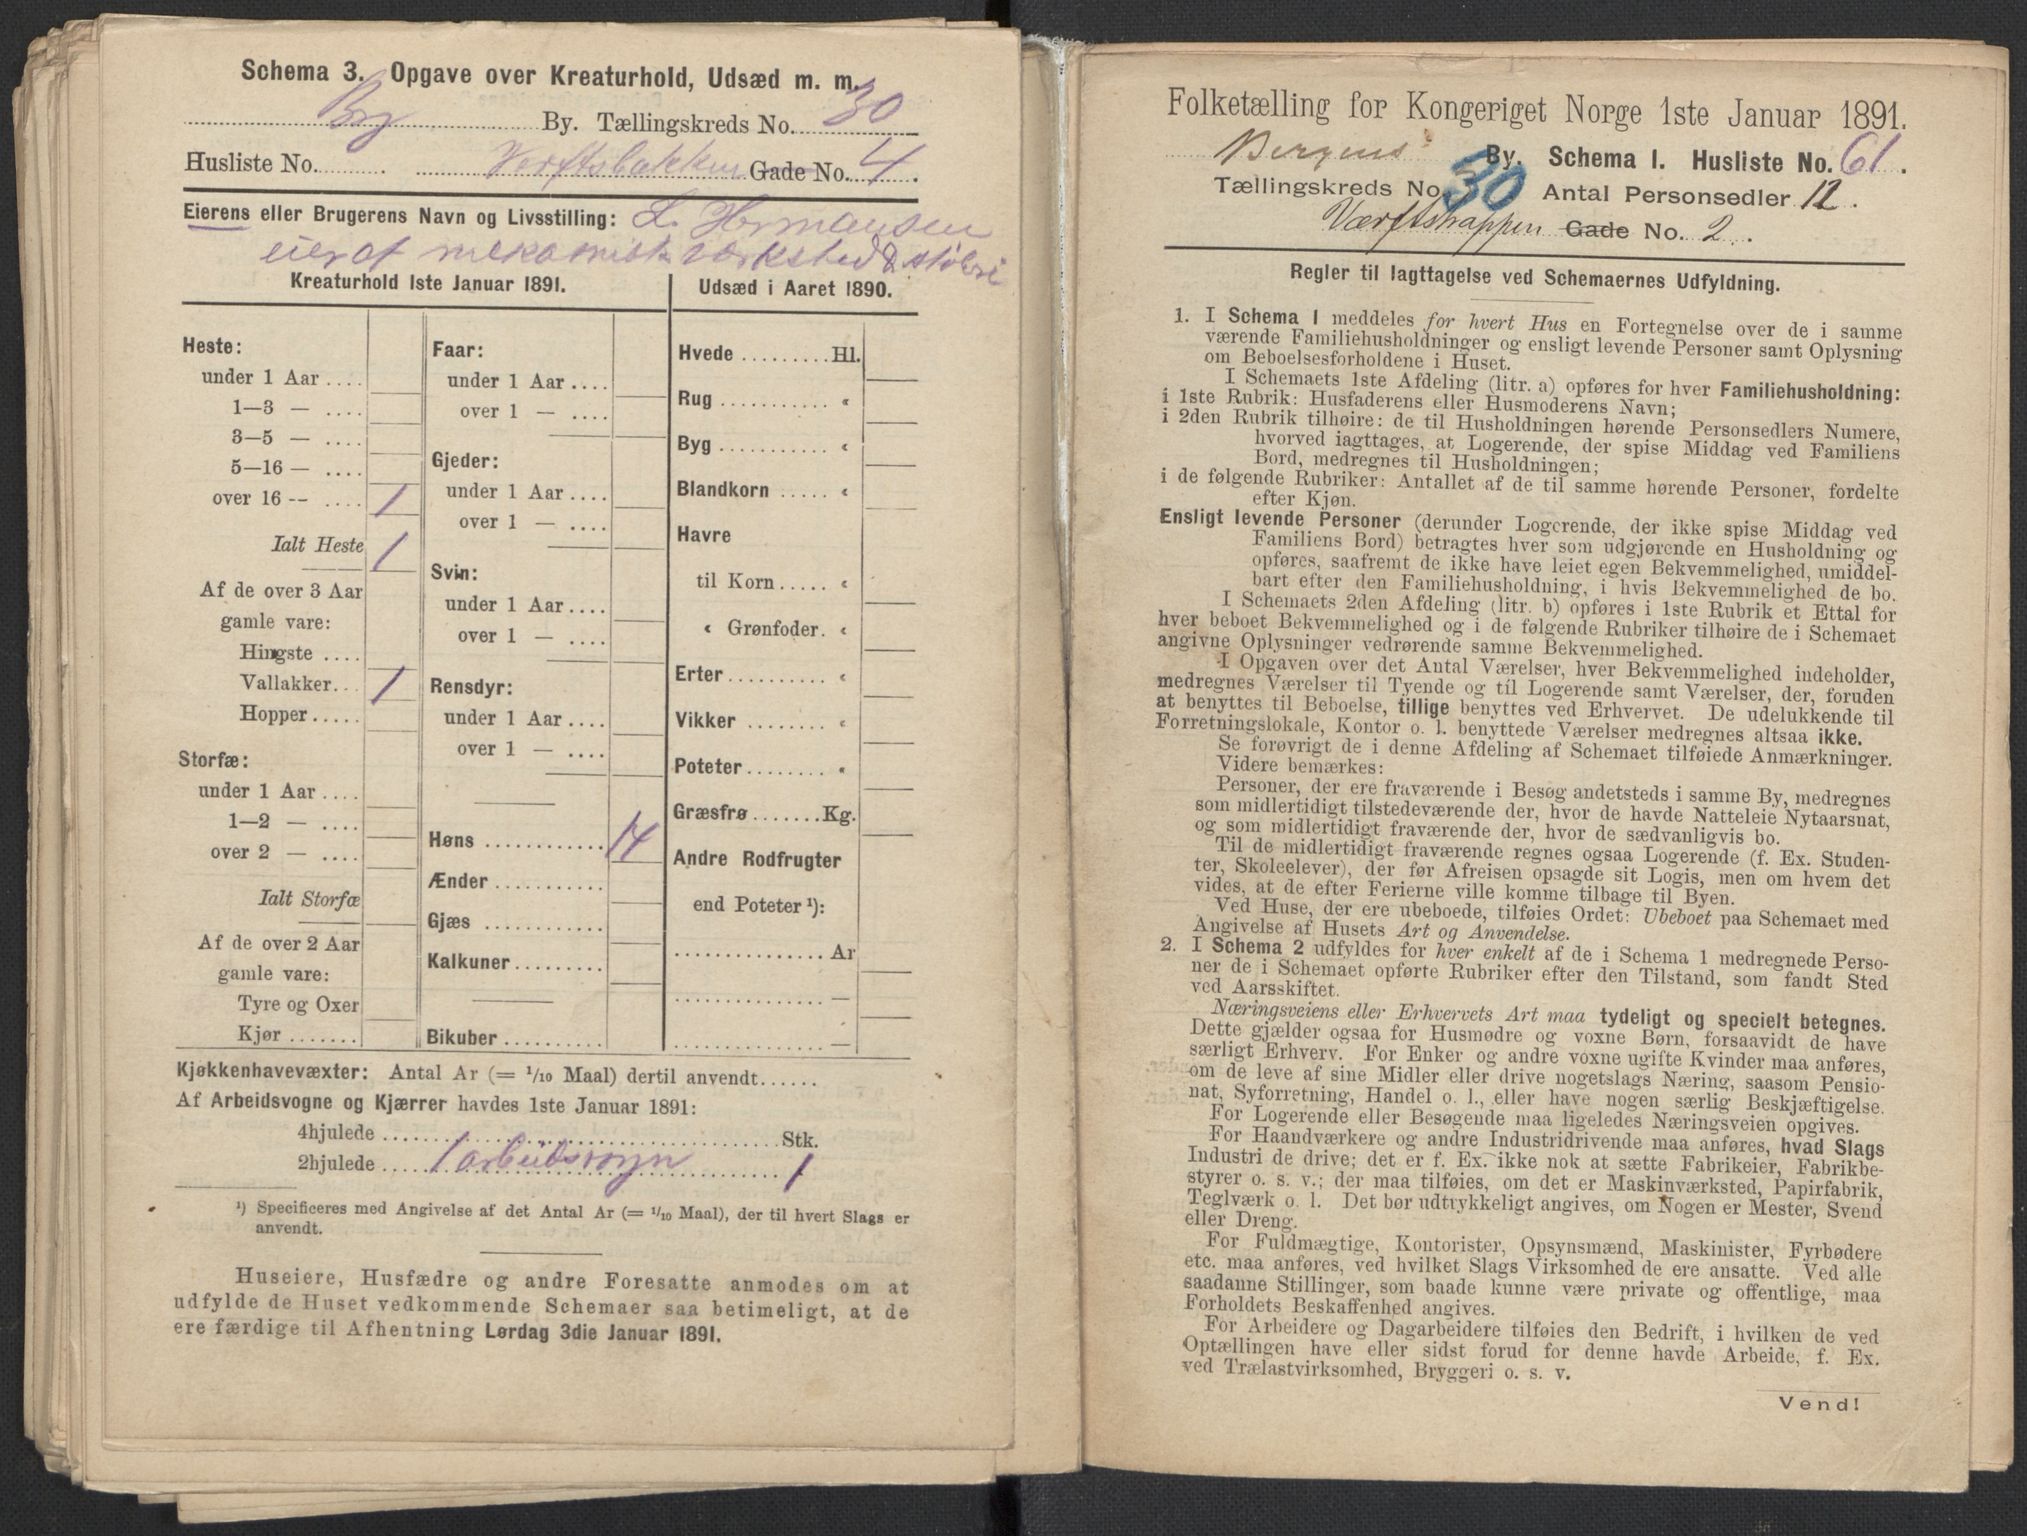 Schema 3. Opgave over Kreaturhold, Udsæd m. m.
By. Tællingskreds No. 30
Husliste No. Verftsbakken Gade No. 4.
Eierens eller Brugerens Navn og Livsstilling: L. Hermansen
eier af mekanisk værksted & støberi
Kreaturhold 1ste Januar 1891.
Heste:
under 1 Aar ....
1—3 — ....
3—5 — ....
5—16 — ....
over 16 -- .... 1
Ialt Heste 1
Af de over 3 Aar
gamle vare:
Hingste ....
Vallakker... 1
Hopper .....
Storfæ:
under 1 Aar ....
1—2 — ....
over 2 — ....
Ialt Storfæ
Af de over 2 Aar
gamle vare:
Tyre og Oxer
Kjør .......
Faar:
under 1 Aar ....
over 1 — ....
Gjeder:
under 1 Aar ....
over 1 — ....
Svin:
under 1 Aar ....
over 1 — ....
Rensdyr:
under 1 Aar ....
over 1 — ....
Høns ............ 14
Ænder ...........
Gjæs ............
Kalkuner.........
Bikuber ..........
Udsæd i Aaret 1890.
Hvede ......... Hl.
Rug ........... «
Byg ........... «
Blandkorn ..... «
Havre
til Korn ..... «
« Grønfoder. «
Erter .......... «
Vikker ........ «
Poteter........ «
Græsfrø ....... Kg.
Andre Rodfrugter
end Poteter ¹):
............... Ar
............... —
............... —
Kjøkkenhavevæxter: Antal Ar (= 1/10 Maal) dertil anvendt......
Af Arbeidsvogne og Kjærrer havdes 1ste Januar 1891:
4hjulede ........................................ Stk.
2hjulede ..... 1 arbeidsvogn 1
¹) Specificeres med Angivelse af det Antal Ar (= 1/10 Maal), der til hvert Slags er
anvendt.
Huseiere, Husfædre og andre Foresatte anmodes om at
udfylde de Huset vedkommende Schemaer saa betimeligt, at de
ere færdige til Afhentning Lørdag 3die Januar 1891.
Folketælling for Kongeriget Norge 1ste Januar 1891.
Bergens By. Schema 1. Husliste No. 61.
Tællingskreds No. 30 Antal Personsedler 12.
Værftstrappen Gade No. 2.
Regler til Iagttagelse ved Schemaernes Udfyldning.
1. I Schema 1 meddeles for hvert Hus en Fortegnelse over de i samme
værende Familiehusholdninger og ensligt levende Personer samt Oplysning
om Beboelsesforholdene i Huset.
I Schemaets 1ste Afdeling (litr. a) opføres for hver Familiehusholdning:
i 1ste Rubrik: Husfaderens eller Husmoderens Navn;
i 2den Rubrik tilhøire: de til Husholdningen hørende Personsedlers Numere,
hvorved iagttages, at Logerende, der spise Middag ved Familiens
Bord, medregnes til Husholdningen;
i de følgende Rubriker: Antallet af de til samme hørende Personer, fordelte
efter Kjøn.
Ensligt levende Personer (derunder Logerende, der ikke spise Middag ved
Familiens Bord) betragtes hver som udgjørende en Husholdning og
opføres, saafremt de ikke have leiet egen Bekvemmelighed, umiddel-
bart efter den Familiehusholdning, i hvis Bekvemmelighed de bo.
I Schemaets 2den Afdeling (litr. b) opføres i 1ste Rubrik et Ettal for
hver beboet Bekvemmelighed og i de følgende Rubriker tilhøire de i Schemaet
angivne Oplysninger vedrørende samme Bekvemmelighed.
I Opgaven over det Antal Værelser, hver Bekvemmelighed indeholder,
medregnes Værelser til Tyende og til Logerende samt Værelser, der, foruden
at benyttes til Beboelse, tillige benyttes ved Erhvervet. De udelukkende til
Forretningslokale, Kontor o. l. benyttede Værelser medregnes altsaa ikke.
Se forøvrigt de i denne Afdeling af Schemaet tilføiede Anmærkninger.
Videre bemærkes:
Personer, der ere fraværende i Besøg andetsteds i samme By, medregnes
som midlertidigt tilstedeværende der, hvor de havde Natteleie Nytaarsnat,
og som midlertidigt fraværende der, hvor de sædvanligvis bo.
Til de midlertidigt fraværende regnes ogsaa Logerende (f. Ex. Studen-
ter, Skoleelever), der før Afreisen opsagde sit Logis, men om hvem det
vides, at de efter Ferierne ville komme tilbage til Byen.
Ved Huse, der ere ubeboede, tilføies Ordet: Ubeboet paa Schemaet med
Angivelse af Husets Art og Anvendelse.
2. I Schema 2 udfyldes for hver enkelt af de i Schema 1 medregnede Perso-
ner de i Schemaet opførte Rubriker efter den Tilstand, som fandt Sted
ved Aarsskiftet.
Næringsveiens eller Erhvervets Art maa tydeligt og specielt betegnes.
Dette gjælder ogsaa for Husmødre og voxne Børn, forsaavidt de have
særligt Erhverv. For Enker og andre voxne ugifte Kvinder maa anføres,
om de leve af sine Midler eller drive nogetslags Næring, saasom Pensio-
nat, Syforretning, Handel o. l., eller have nogen særlig Beskjæftigelse.
For Logerende eller Besøgende maa ligeledes Næringsveien opgives.
For Haandværkere og andre Industridrivende maa anføres, hvad Slags
Industri de drive; det er f. Ex. ikke nok at sætte Fabrikeier, Fabrikbe-
styrer o. s. v.; der maa tilføies, om det er Maskinværksted, Papirfabrik,
Teglværk o. l. Det bør udtrykkeligt angives, om Nogen er Mester, Svend
eller Dreng.
For Fuldmægtige, Kontorister, Opsynsmænd, Maskinister, Fyrbødere
etc. maa anføres, ved hvilket Slags Virksomhed de ere ansatte. Ved alle
saadanne Stillinger, som baade kunne være private og offentlige, maa
Forholdets Beskaffenhed angives.
For Arbeidere og Dagarbeidere tilføies den Bedrift, i hvilken de ved
Optællingen have eller sidst forud for denne havde Arbeide, f. Ex.
ved Trælastvirksomhed, Bryggeri o. s. v.
Vend!